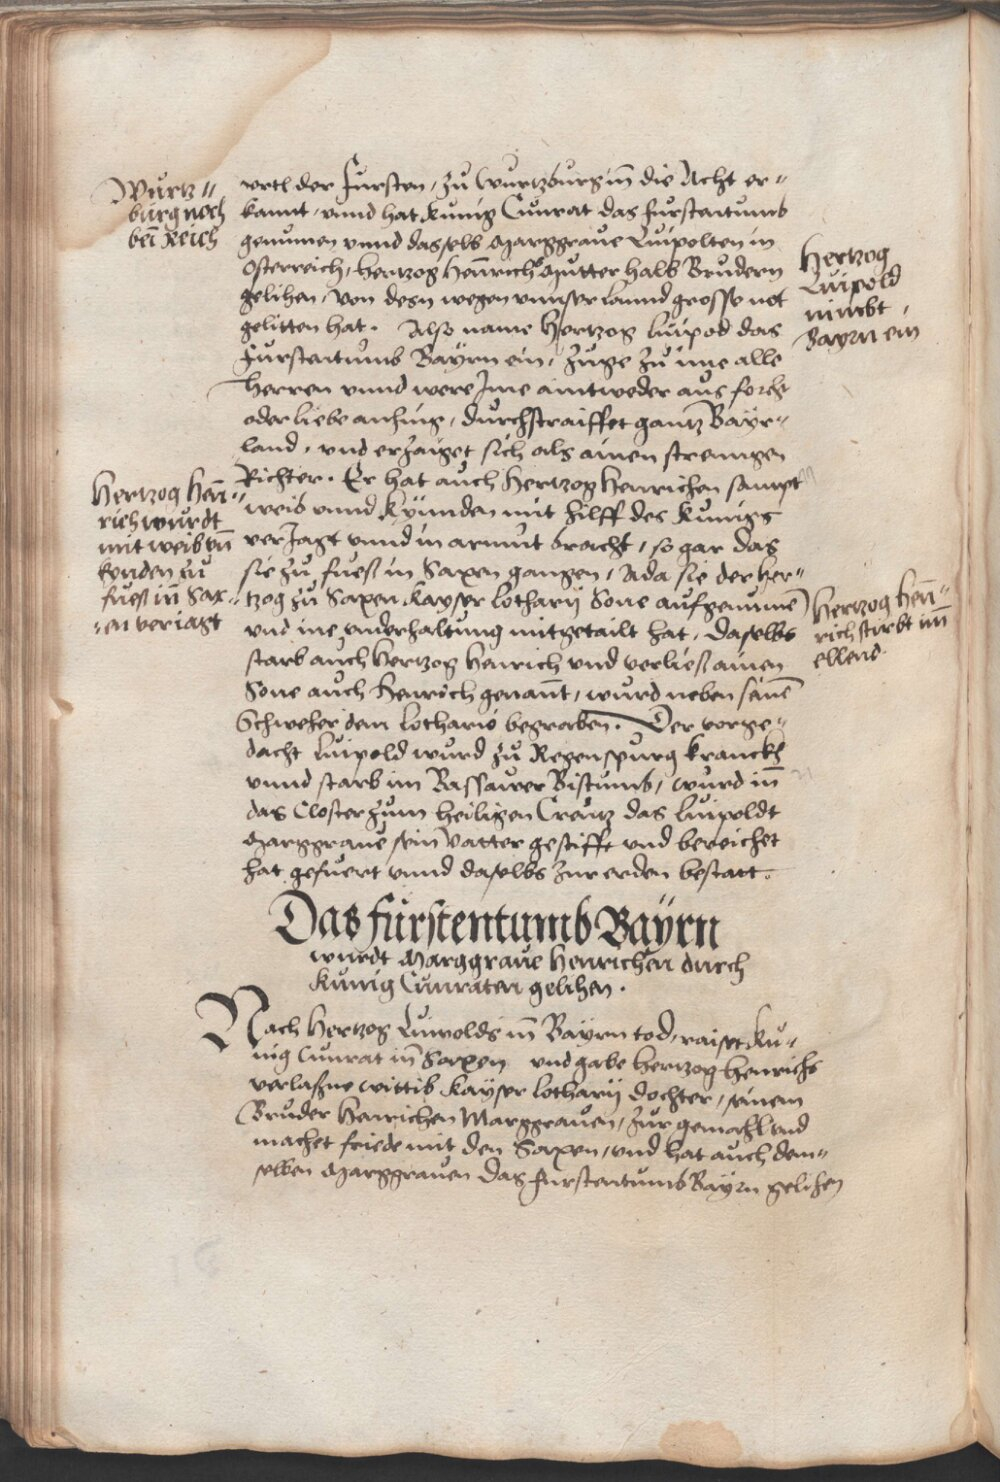 Wurtz=
burg noch
bei Reich
vrtl der Fursten, zu Wurtzburg in die Acht er=
kannt, vnnd hat Kunig Cunrat das furstentumb
genumen vnnd dasselb Marggraue Luipolten in
Osterreich, Hertzog Henrichs Mutter halb Brudern
gelihen, von desn wegen vnnser lannd grosse not
gelitten hat. Also name Hertzog Luipod das
Furstentumb Bayrn ein, zuge zu ime alle
Herren vnnd were Ime aintweder aus forcht
oder liebe anhing, durchstraiffet gantz Bayr=
land, vnd erzaiget sich als ainen strenngen
Richter. Er hat auch Hertzog Henrichen sampt
weib vnnd Kynnden mit hilff des Kunigs
verJagt vnnd in armut bracht, so gar das
sie zu fuess in Saxen gangen, Alda sie der Her=
tzog zu Saxen Kayser Lotharij Sone aufgenumen
vnd ine vnderhaltung mitgetailt hat, daselbs
starb auch Hertzog Henrich vnd verliess ainen
Sone auch Henrich genannt, wurd neben seinen
Schweher dem Lothario begraben. Der vorge=
dacht Luipold wurd zu Regenspurg kranckh
vnnd starb im Passawer Bistumb, wurd in
das Closter zum heiligen Creutz das Luipoldt
Marggraue sein Vatter gestifft vnd bereichet
hat gefuert vnnd daselbs zur erden bestatt.
Hertzog
Luipold
nimbt
Bayrn ein
Hertzog Hen=
rich wurdt
mit weib vn
kynden zu
fuess in Sax=
=en veriagt
Hertzog Hen=
rich stirbt im
ellend
Das furstentumb Bayrn
wurdt Marggraue Henrichen durch
Kunig Cunraten gelihen.
Nach Hertzog Luipolds in Bayrn tod, raiset Ku=
nig Cunrat in Saxen vnd gabe Hertzog Henrichs
verlassne wittib Kayser Lotharij dochter, seinem
Bruder Henrichen Marggrauen, zur gemahl vnd
machet friede mit den Saxen, vnd hat auch dem=
selben Marggrauen das furstentumb Bayrn gelihen